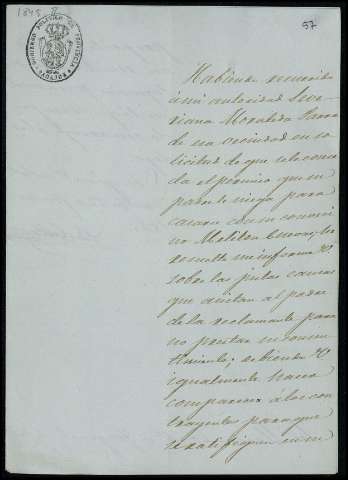 1848
57
GOBIERNO POLITICO DE PROVINCIA
TOLEDO
Habiendo recurrido
á mi autoridad Seve-
riana Moraleda
de esa vecindad en so-
licitud de que se le conce-
da el permiso que su
padre le niega para
casarse con su conveci-
no Meliton
sobre las justas causas
que asistan al padre
de la reclamante para
no prestar su consen-
timiento; debiendo V.
igualmente hacer
comparecer a los con-
trayentes para que
se ratifiquen en su